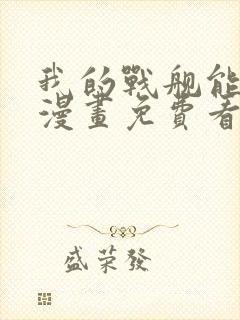 我的戰舰能
漫畫免費看
盛荣發